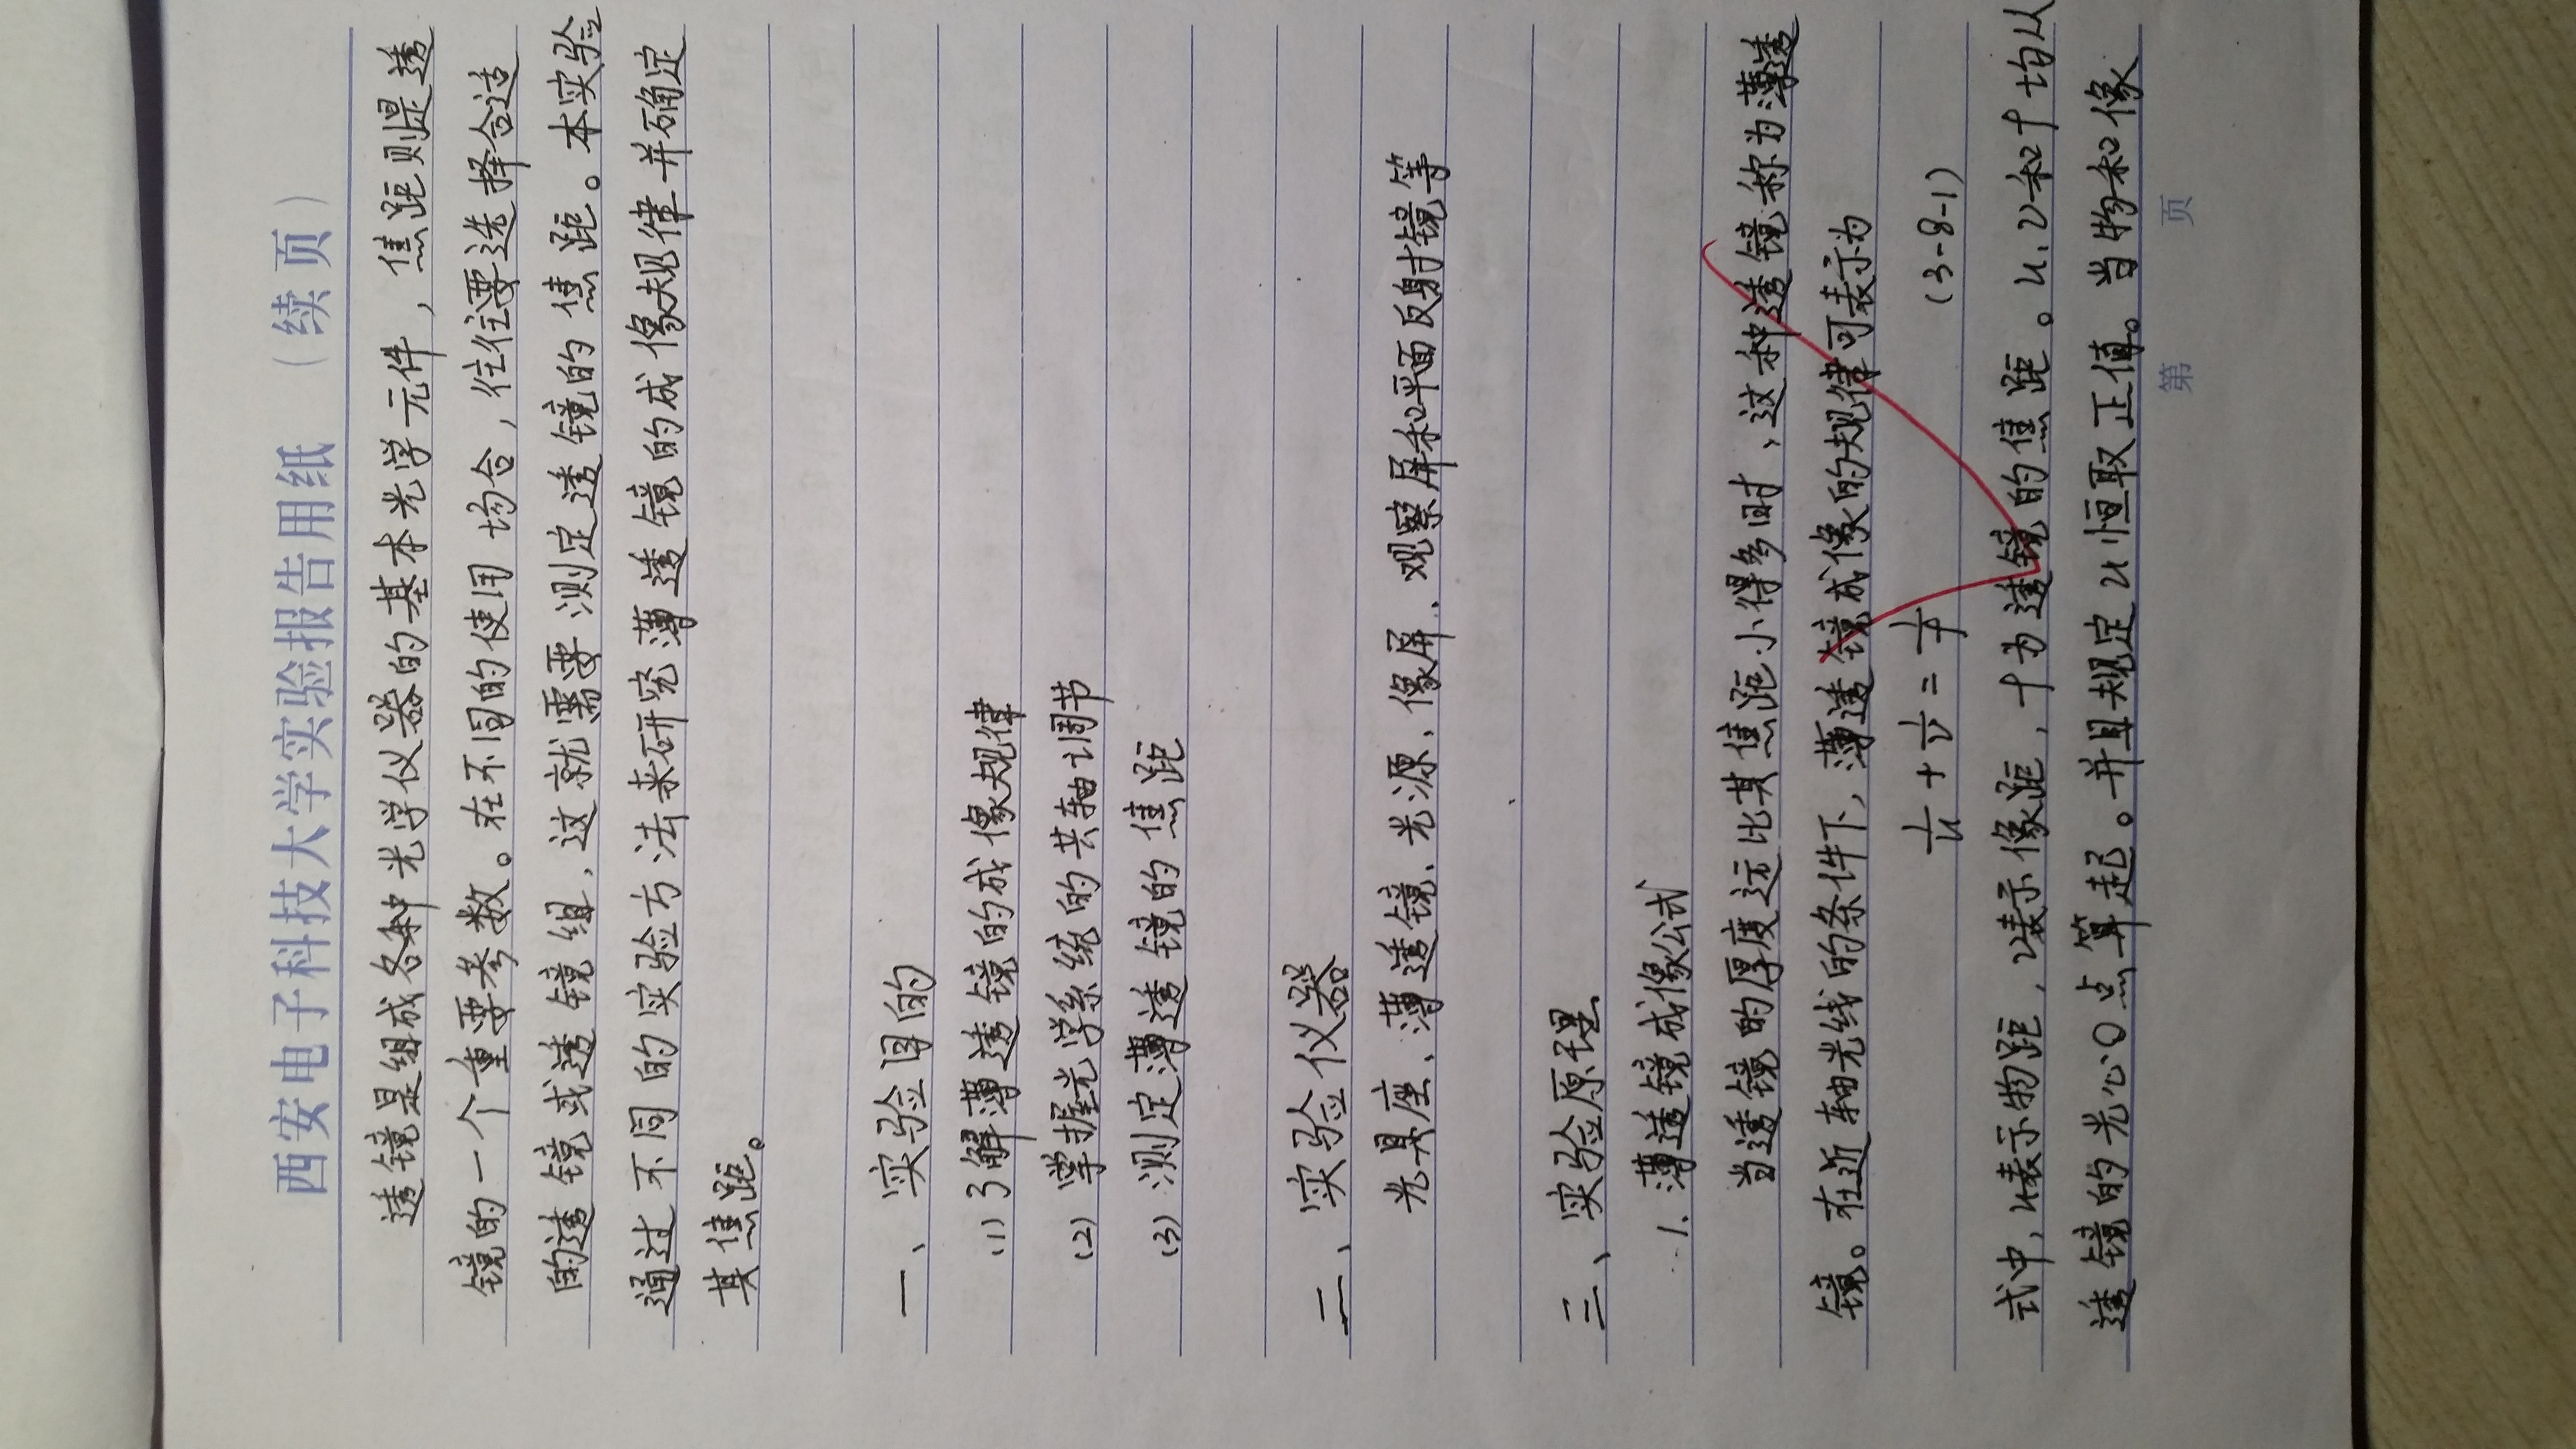 西安电子科技大学实验报告用纸 （续 页）
透镜是组成各种光学仪器的基本光学元件，焦距则是透
镜的一个重要参数。在不同的使用场合，往往要选择合适
的透镜或透镜组，这就需要测定透镜的焦距。本实验
通过不同的实验方法来研究薄透镜的成像规律并确定
其焦距。
一、实验目的
(1) 了解薄透镜的成像规律
(2) 掌握光学系统的共轴调节
(3) 测定薄透镜的焦距
二、实验仪器
光具座、薄透镜、光源、像屏、观察屏和平面反射镜等
三、实验原理
1. 薄透镜成像公式
当透镜的厚度远比其焦距小得多时，这种透镜称为薄透
镜。在近轴光线的条件下，薄透镜成像的规律可表示为
1/u + 1/v = 1/f (3-8-1)
式中，u表示物距，v表示像距，f为透镜的焦距。u、v和f均从
透镜的光心O点算起。并且规定u恒取正值。当物和像
第 页